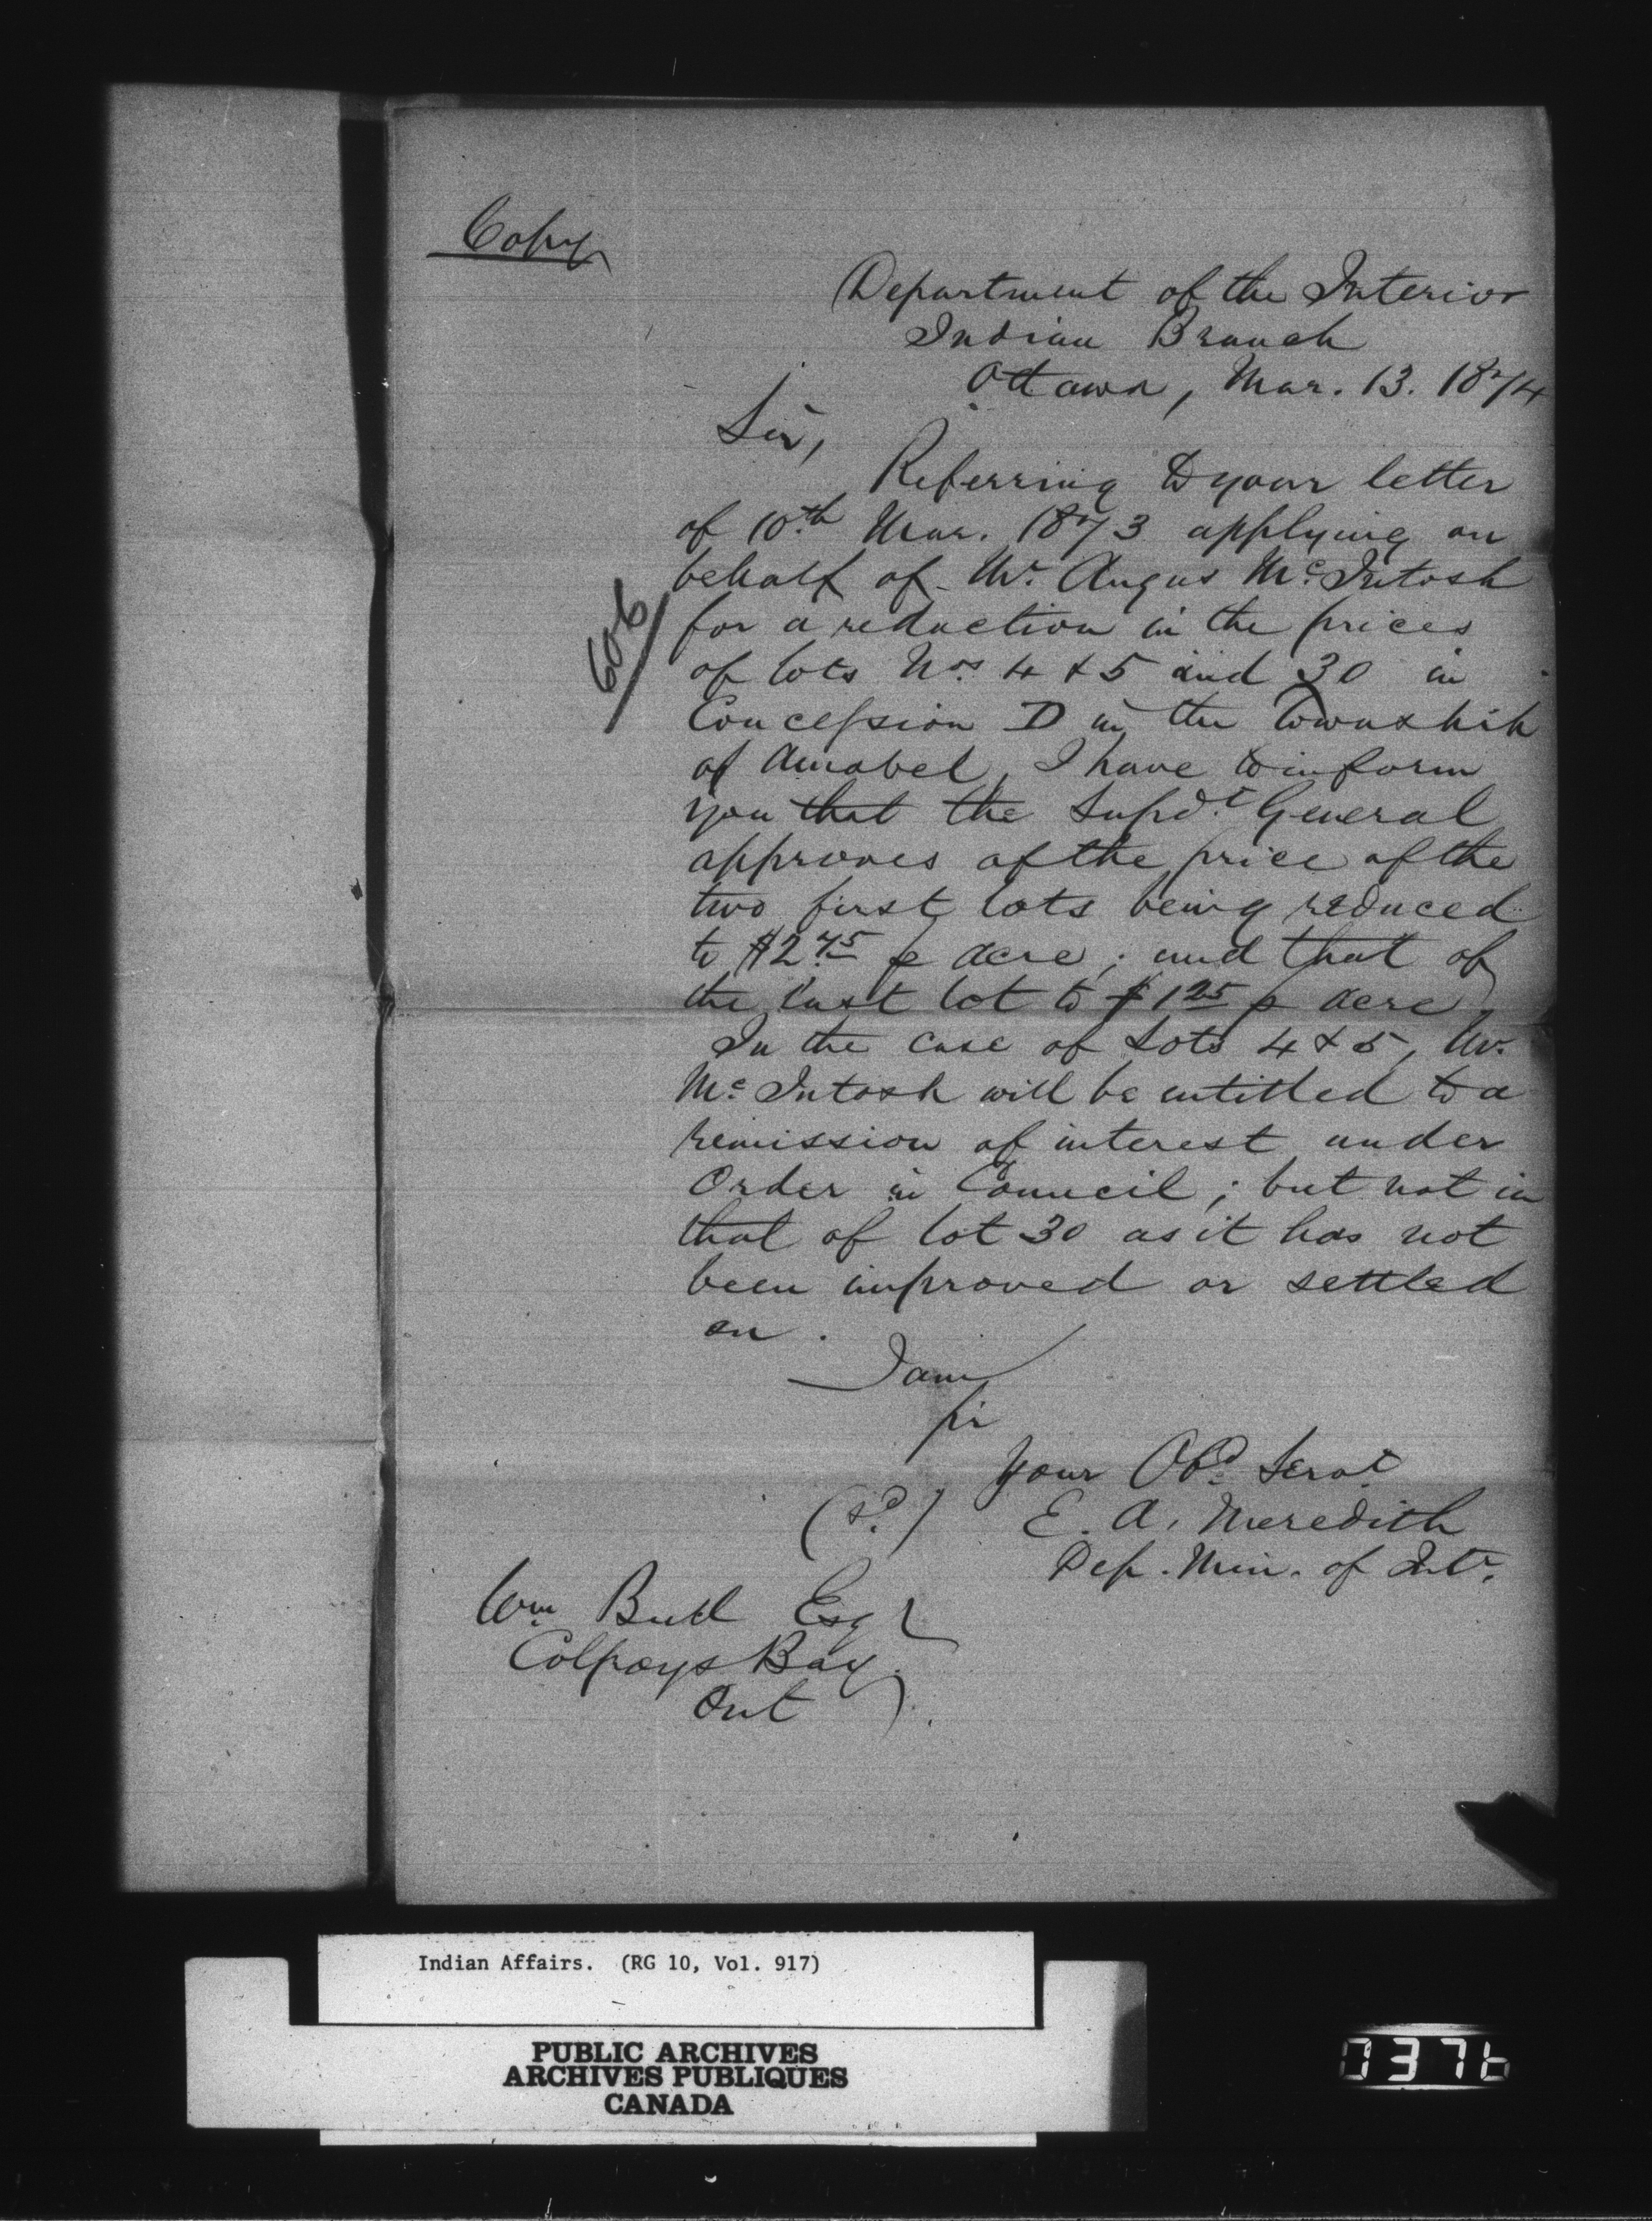 Copy
Department of the Interior
Indian Branch
Ottawa, Mar. 13. 1874
Sir,
Referring to your letter
of 10th Mar. 1873 applying on
behalf of Mr. Angus McIntosh
for a reduction in the prices
606
of lots Nos 4 & 5 and 30 in
Concession D in the Township
of Amabel, I have to inform
you that the Supdt. General
approves of the price of the
two first lots being reduced
to $2.75 p acre; and that of
the last lot to $1.25 p acre
In the case of Lots 4 & 5, Mr.
McIntosh will be entitled to a
remission of interest under
Order in Council; but not in
that of lot 30 as it has not
been improved or settled
on.
I am
Sir
Your Obd. Servt
(sd.) E. A. Meredith
Dep. Min. of Intr.
Wm. Bull Esq
Colpoys Bay
Ont
Indian Affairs. (RG 10, Vol. 917)
PUBLIC ARCHIVES
ARCHIVES PUBLIQUES
CANADA
0376